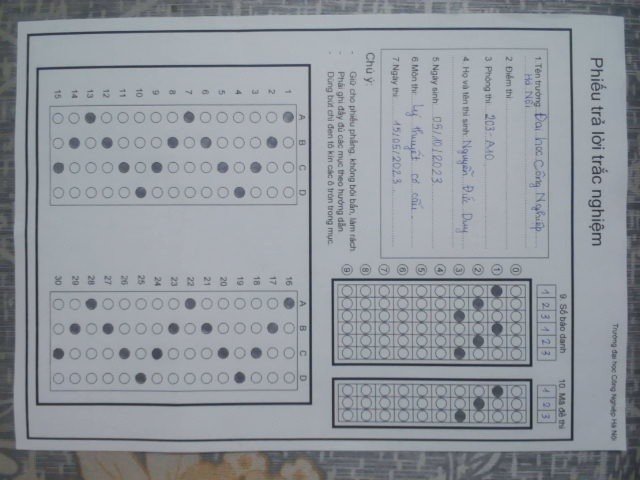 Trường đại học Công Nghiệp Hà Nội
Phiếu trả lời trắc nghiệm
1.Tên trường: Đại học Công Nghiệp
Hà Nội
2. Điểm thi:
3. Phòng thi: 203-A10
4. Họ và tên thí sinh: Nguyễn Đức Duy
5.Ngày sinh: 05/10/2023
6.Môn thi: Lý thuyết cơ cấu.
7.Ngày thi: 15/05/2023
9. Số báo danh
1 2 3 1 2 3
10. Mã đề thi
1 2 3
0
1
2
3
4
5
6
7
8
9
Chú ý:
- Giữ cho phiếu phẳng, không bôi bẩn, làm rách.
- Phải ghi đầy đủ các mục theo hướng dẫn.
- Dùng bút chì đen tô kín các ô tròn trong mục.
A B C D
1
2
3
4
5
6
7
8
9
10
11
12
13
14
15
A B C D
16
17
18
19
20
21
22
23
24
25
26
27
28
29
30